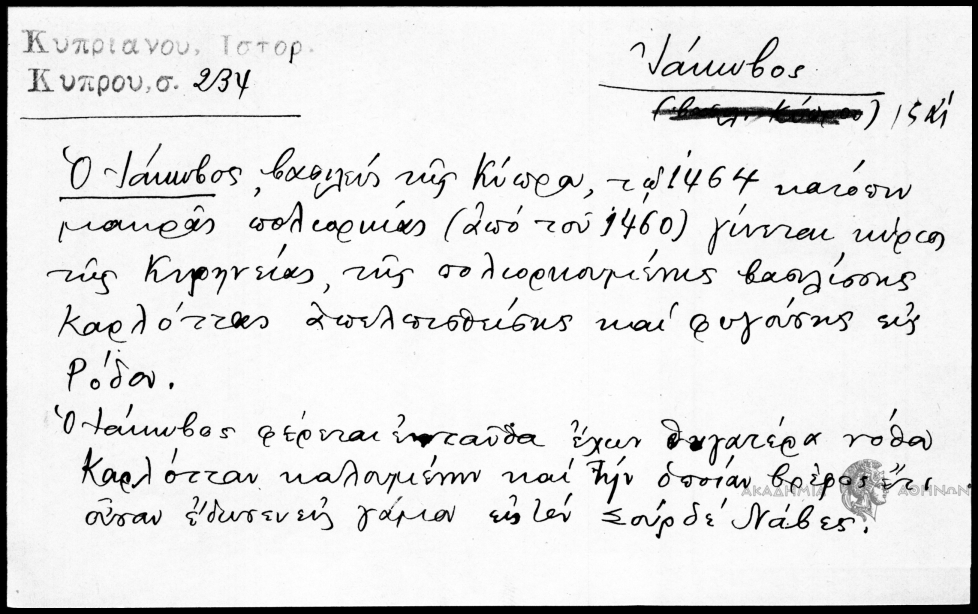 Κυπριανου, Ιστορ.
Κυπρου, σ. 234
Ἰάκωβος
Ὁ Ἰάκωβος, βασιλεύς τῆς Κύπρου, τῷ 1464 κατόπιν
μακρᾶς πολιορκίας (ἀπό τοῦ 1460) γίνεται κύριος
τῆς Κυρηνείας, τῆς πολιορκουμένης βασιλίσσης
Καρλόττας ἀπελπισθείσης καί φυγούσης εἰς
Ρόδον.
Ὁ Ἰάκωβος φέρεται ἐνταῦθα ἔχων θυγατέρα νόθον
Καρλότταν καλουμένην καί τήν ὁποίαν βρέφος ἔτι
οὖσαν ἔδωσεν εἰς γάμον εἰς τόν Σούρ δέ Νάβες.
ΑΚΑΔΗΜΙΑ ΑΘΗΝΩΝ